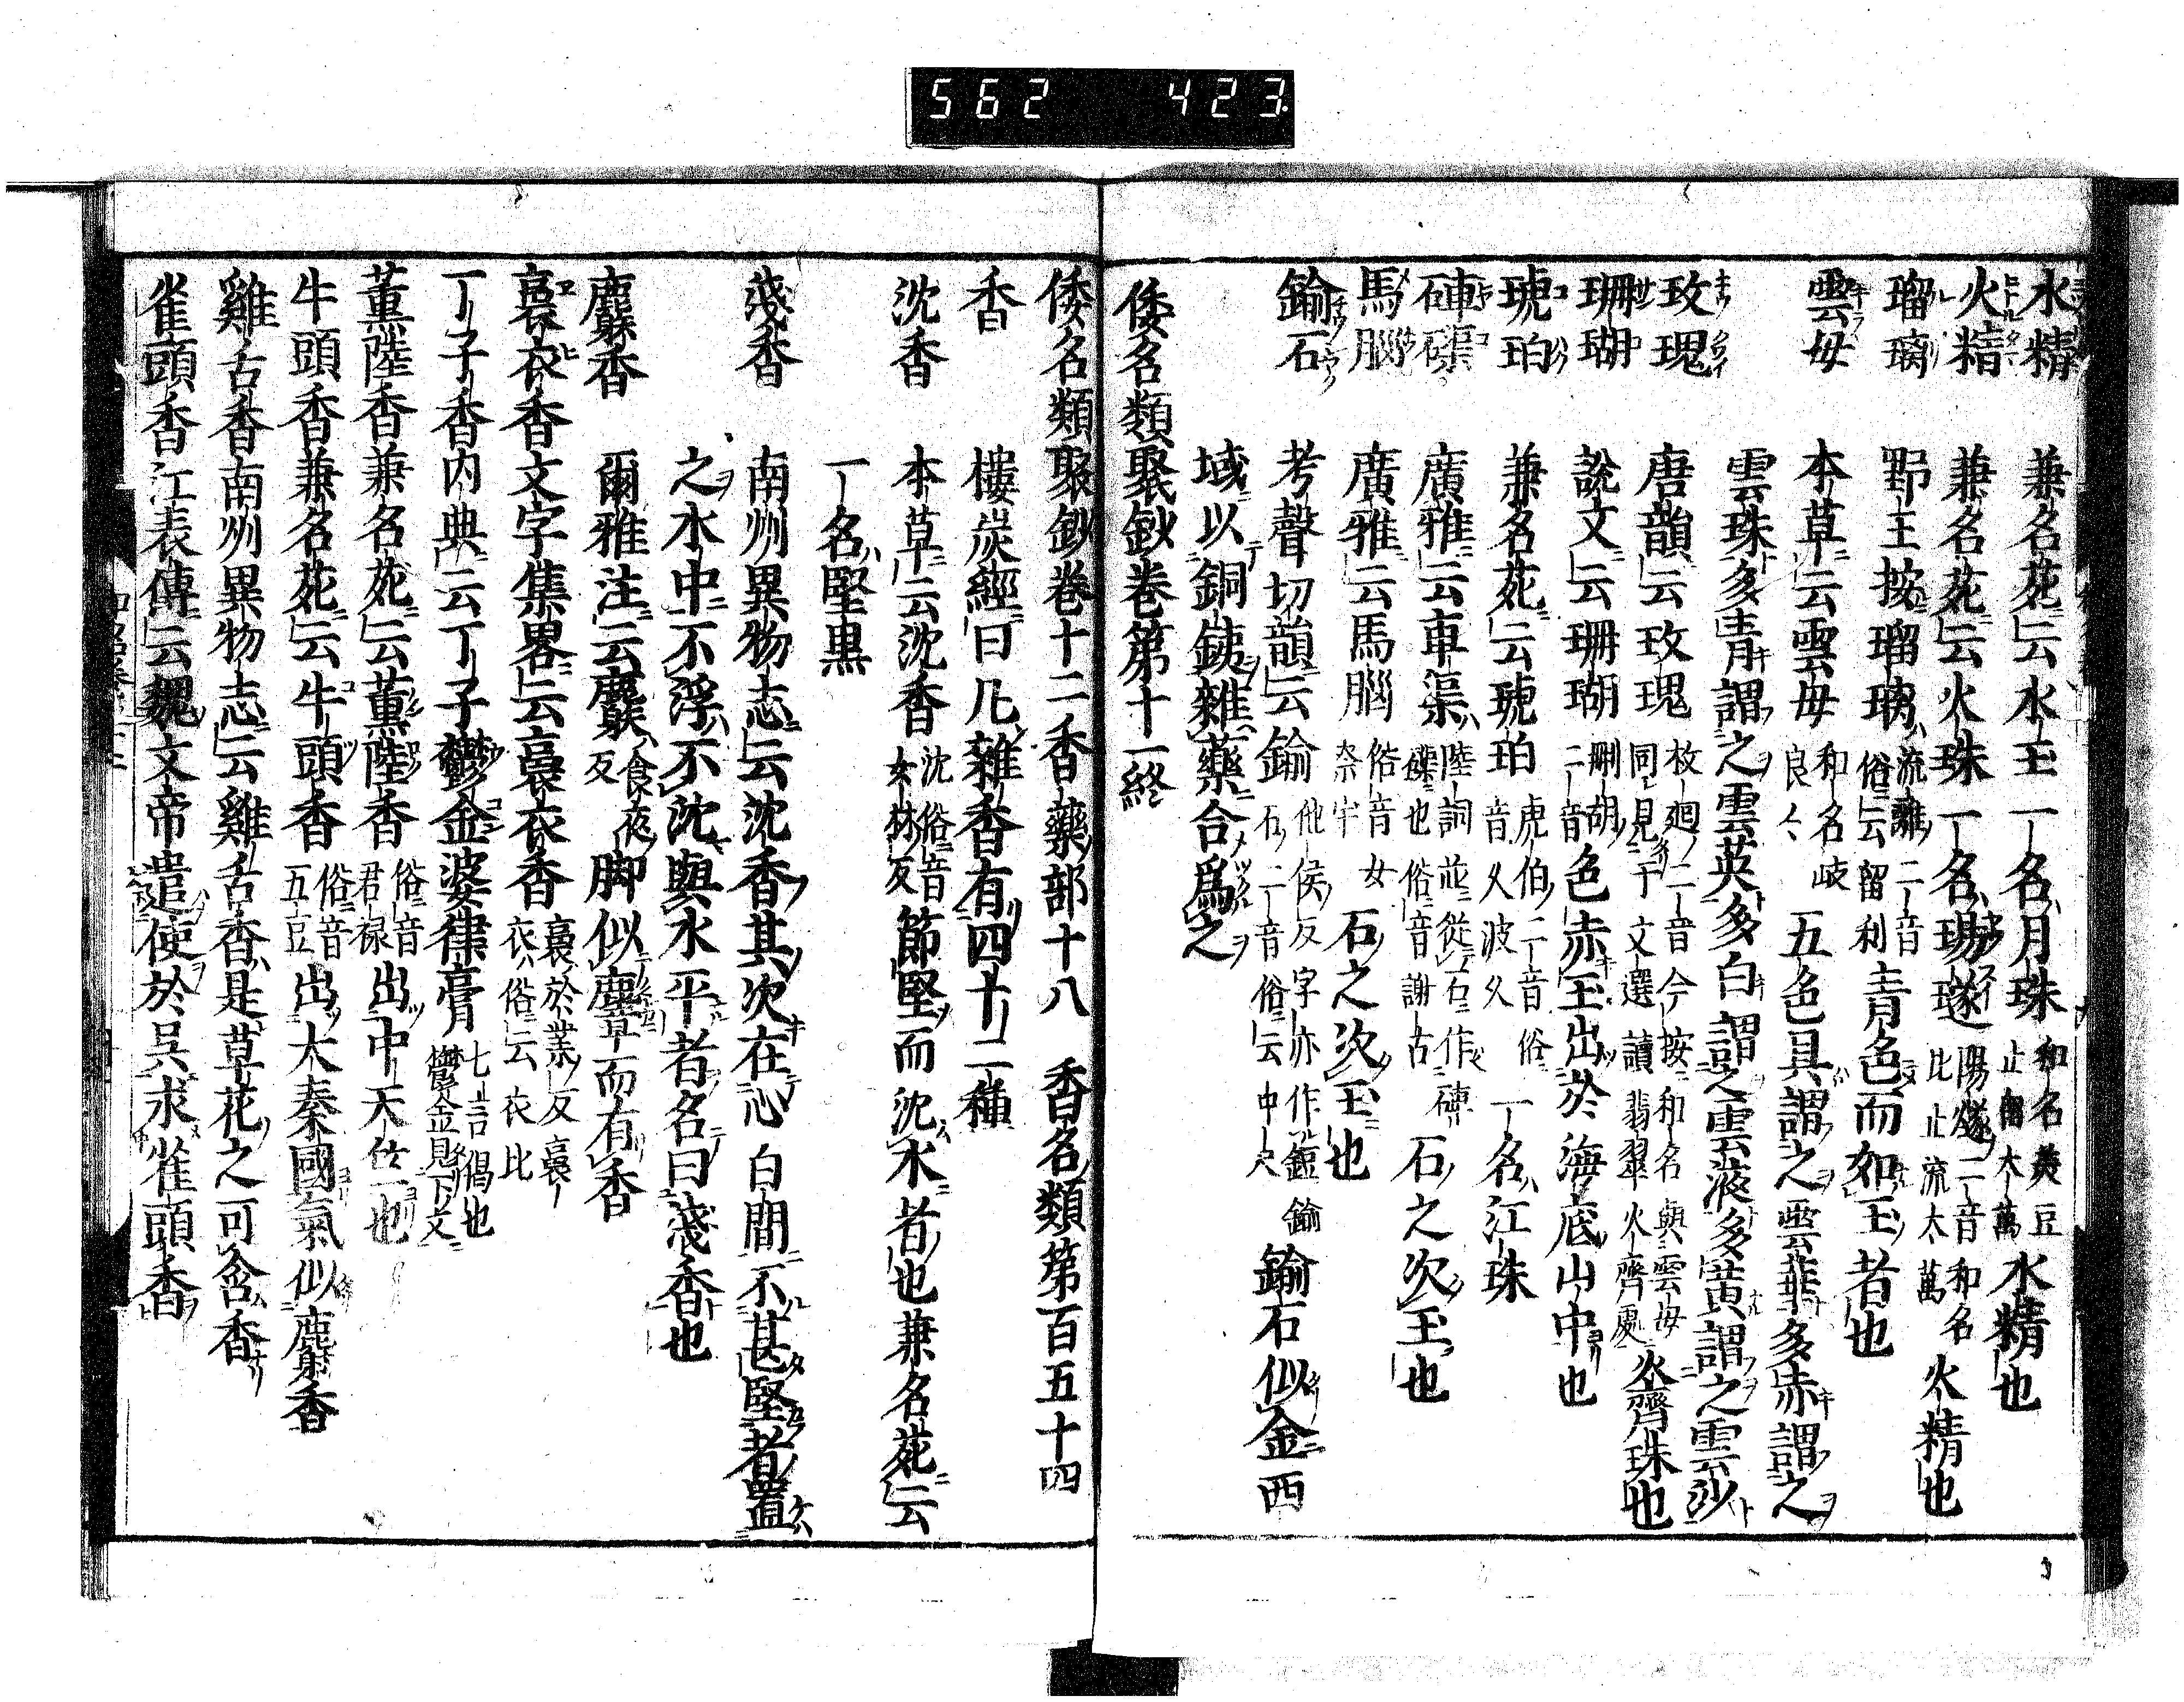 562 423
水精 兼名苑云水玉一名月珠 和名美豆止留太萬 水精也
火精 兼名苑云火珠一名瑒璲 陽燧二音和名比止流太萬 火精也
瑠璃 野王按瑠璃 流離二音俗云留利 青色而如玉者也
雲母 本草云雲母 和名岐良々 五色具謂之雲華多赤謂之
雲珠多青謂之雲英多白謂之雲液多黄謂之雲沙
玫瑰 唐韻云玫瑰 枚廻二音今按和名與雲母同見于文選讀翡翠火齊處 火齊珠也
珊瑚 說文云珊瑚 刪胡二音 色赤玉出於海底山中也
琥珀 兼名苑云琥珀 虎伯二音俗音久波久 一名江珠
硨磲 廣雅云車渠 陸詞並從石作硨磲也俗音謝古 石之次玉也
馬腦 廣雅云馬腦 俗音女奈宇 石之次玉也
鍮石 考聲切韻云鍮 他侯反字亦作𨥏鍮石二音俗云中尺 鍮石似金西
域以銅鐵雜藥合爲之
倭名類聚鈔卷第十一終
倭名類聚鈔卷十二香藥部十八 香名類第百五十四
香 樓炭經曰凡雜香有四十二種
沈香 本草云沈香 沈俗音女林反 節堅而沈水者也兼名苑云
一名堅黒
淺香 南州異物志云沈香其次在心白間不甚堅者置
之水中不浮不沈與水平者名曰淺香也
麝香 爾雅注云麝 食夜反 脚似麞而有香
裛衣香 文字集畧云裛衣香 裛於業反裛衣俗云衣比
丁子香 内典云丁子鬱金婆律膏 七言偈也鬱金見下文
薫陸香 兼名苑云薫陸香 俗音君禄 出中天竺也
牛頭香 兼名苑云牛頭香 俗音五豆 出大秦國氣似麝香
雞舌香 南州異物志云雞舌香是草花之可含香
雀頭香 江表傳云魏文帝遣使於吳求雀頭香